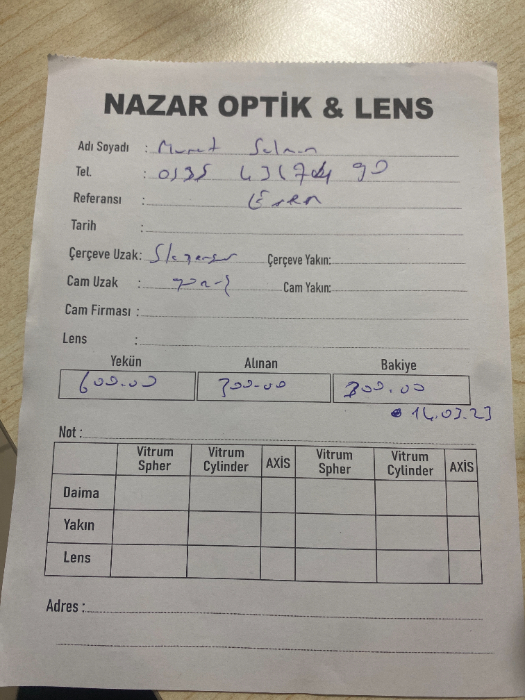 NAZAR OPTİK & LENS
Adı Soyadı : Murat Selman
Tel. : 0535
Referansı : Eren
Tarih :
Çerçeve Uzak: Çerçeve Yakın:
Cam Uzak : Cam Yakın:
Cam Firması :
Lens :
Yekün Alınan Bakiye
600.00 300.00 300.00
14.03.23
Not :
Vitrum Spher Vitrum Cylinder AXİS Vitrum Spher Vitrum Cylinder AXİS
Daima
Yakın
Lens
Adres :